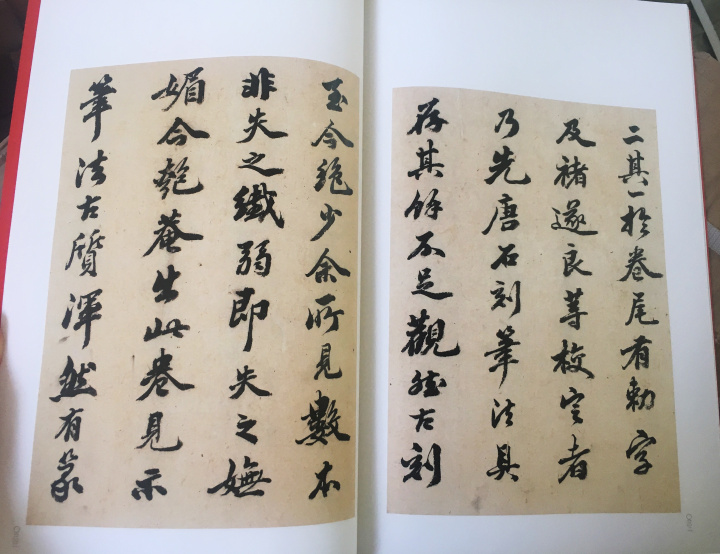 二其一於卷尾有勅字
及褚遂良等校定者
乃先唐石刻筆法具
存其餘不足觀然古刻
至今絕少余所見數本
非失之纖弱即失之嫵
媚今匏菴出此卷見示
筆法古質渾然有篆